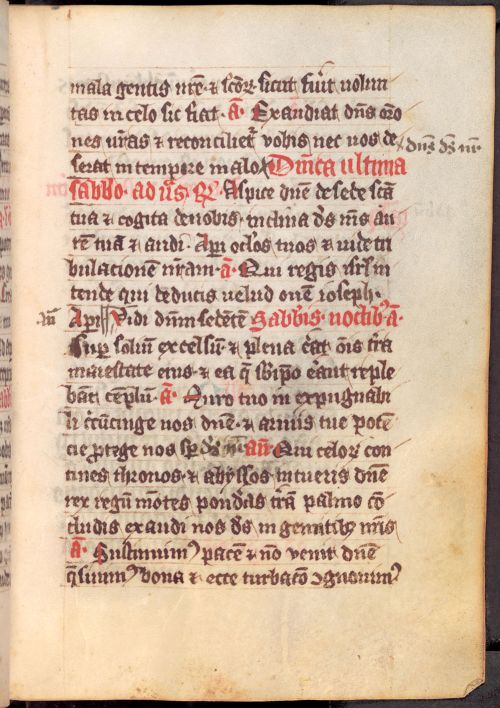 mala gentis nr̄e · ⁊ sc̄oꝝ sicut fūit uolun
tas in celo sic fiat · A͞ · Exaudiat dn̄s or̄o
nes ur̄as ⁊ reconcilietᷣ vobis nec nos de
serat in tempore malo Dn̄ica ultima
dn̄s ds̄ nr̄
sabb̄o · ad v̄s R͞ · Aspice dn̄e de sede sc̄a
tua ⁊ cogita de nobis · inclina ds̄ m̄s au
rē tuā ⁊ audi · Aperi oc̄los tuos ⁊ uide tri
bulacionē nr̄am · A͞ · Qui regis isrl̄ in
tende qui deducis uelud ouē ioseph ·
Aperi Vidi dn̄m sedētē Sabb̄is · noctib̄ A͞ ·
sup̄ soliū excelsū · ⁊ plena er̄at om̄is tr̄a
maiestate eius · ⁊ ea q̄ sub ip̄o er̄ant reple
bāt tēplū · A͞ · Muro tuo inexpugnabi
li cͥcūcinge nos dn̄e · ⁊ armis tue potē
cie ꝓtege nos sp̄ ds̄ nr̄ an̄ Qui celoꝝ con
tines thronos · ⁊ abyssos intueris dn̄e
rex regū mōtes pondͤas tr̄am palmo cō
cludis exaudi nos ds̄ in gemitib̄ nr̄is
A͞ · Sustinuimꝰ pacē ⁊ nō venit dn̄e
q̄siuimꝰ bona ⁊ ecce turbacō ꝯgnouimꝰ